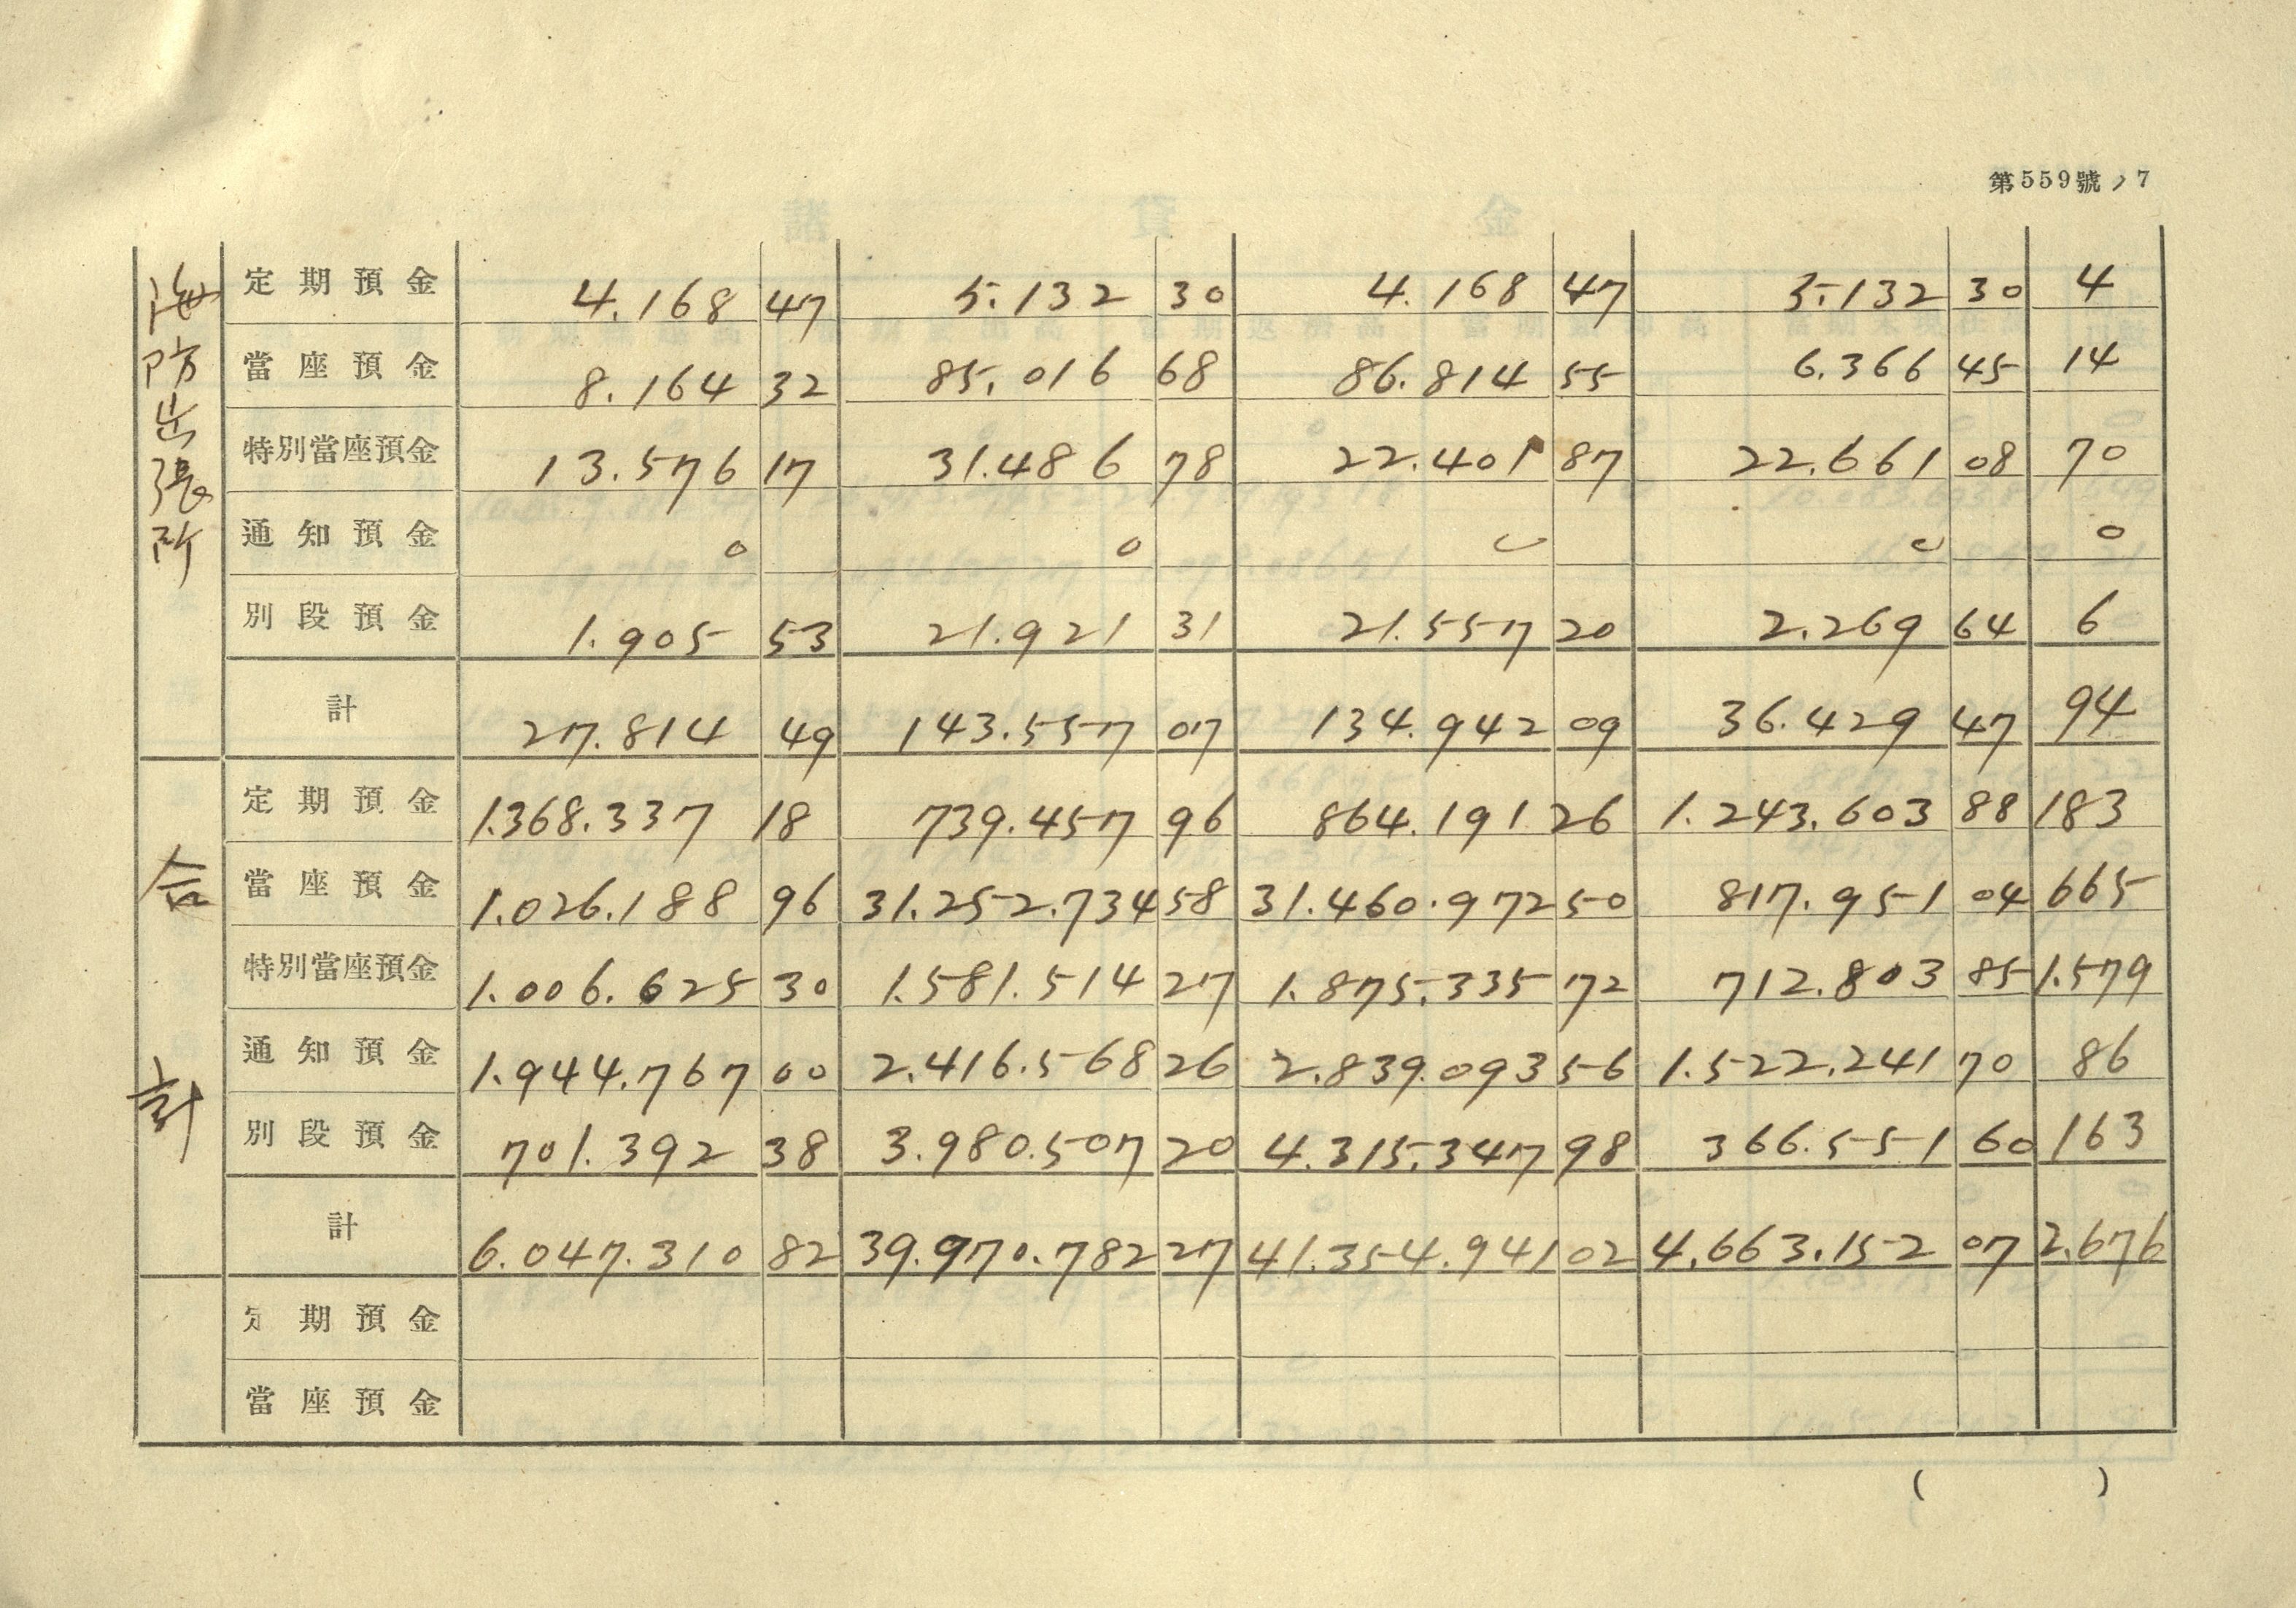 第559號ノ7
海防出張所
定期預金 4.168 47 5.132 30 4.168 47 5.132 30 4
當座預金 8.164 32 85.016 68 86.814 55 6.366 45 14
特別當座預金 13.576 17 31.486 78 22.401 87 22.661 08 70
通知預金 0 0 0 0 0
別段預金 1.905 53 21.921 31 21.557 20 2.269 64 6
計 27.814 49 143.557 07 134.942 09 36.429 47 94
合計
定期預金 1.368.337 18 739.457 96 864.191 26 1.243.603 88 183
當座預金 1.026.188 96 31.252.734 58 31.460.972 50 817.951 04 665
特別當座預金 1.006.625 30 1.581.514 27 1.875.335 72 712.803 85 1.579
通知預金 1.944.767 00 2.416.568 26 2.839.093 56 1.522.241 70 86
別段預金 701.392 38 3.980.507 20 4.315.347 98 366.551 60 163
計 6.047.310 82 39.970.782 27 41.354.941 02 4.663.152 07 2.676
定期預金
當座預金
( )